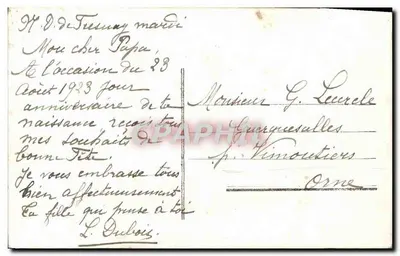 N. D. de Fresnay mardi
Mon cher Papa,
A l'occasion du 23
Août 1923 jour
anniversaire de ta
naissance reçois tous
mes souhaits de
bonne Fête.
Je vous embrasse tous
bien affectueusement
Ta fille qui pense à toi
L. Dubois
Monsieur G.
p. Vimoutiers
Orne